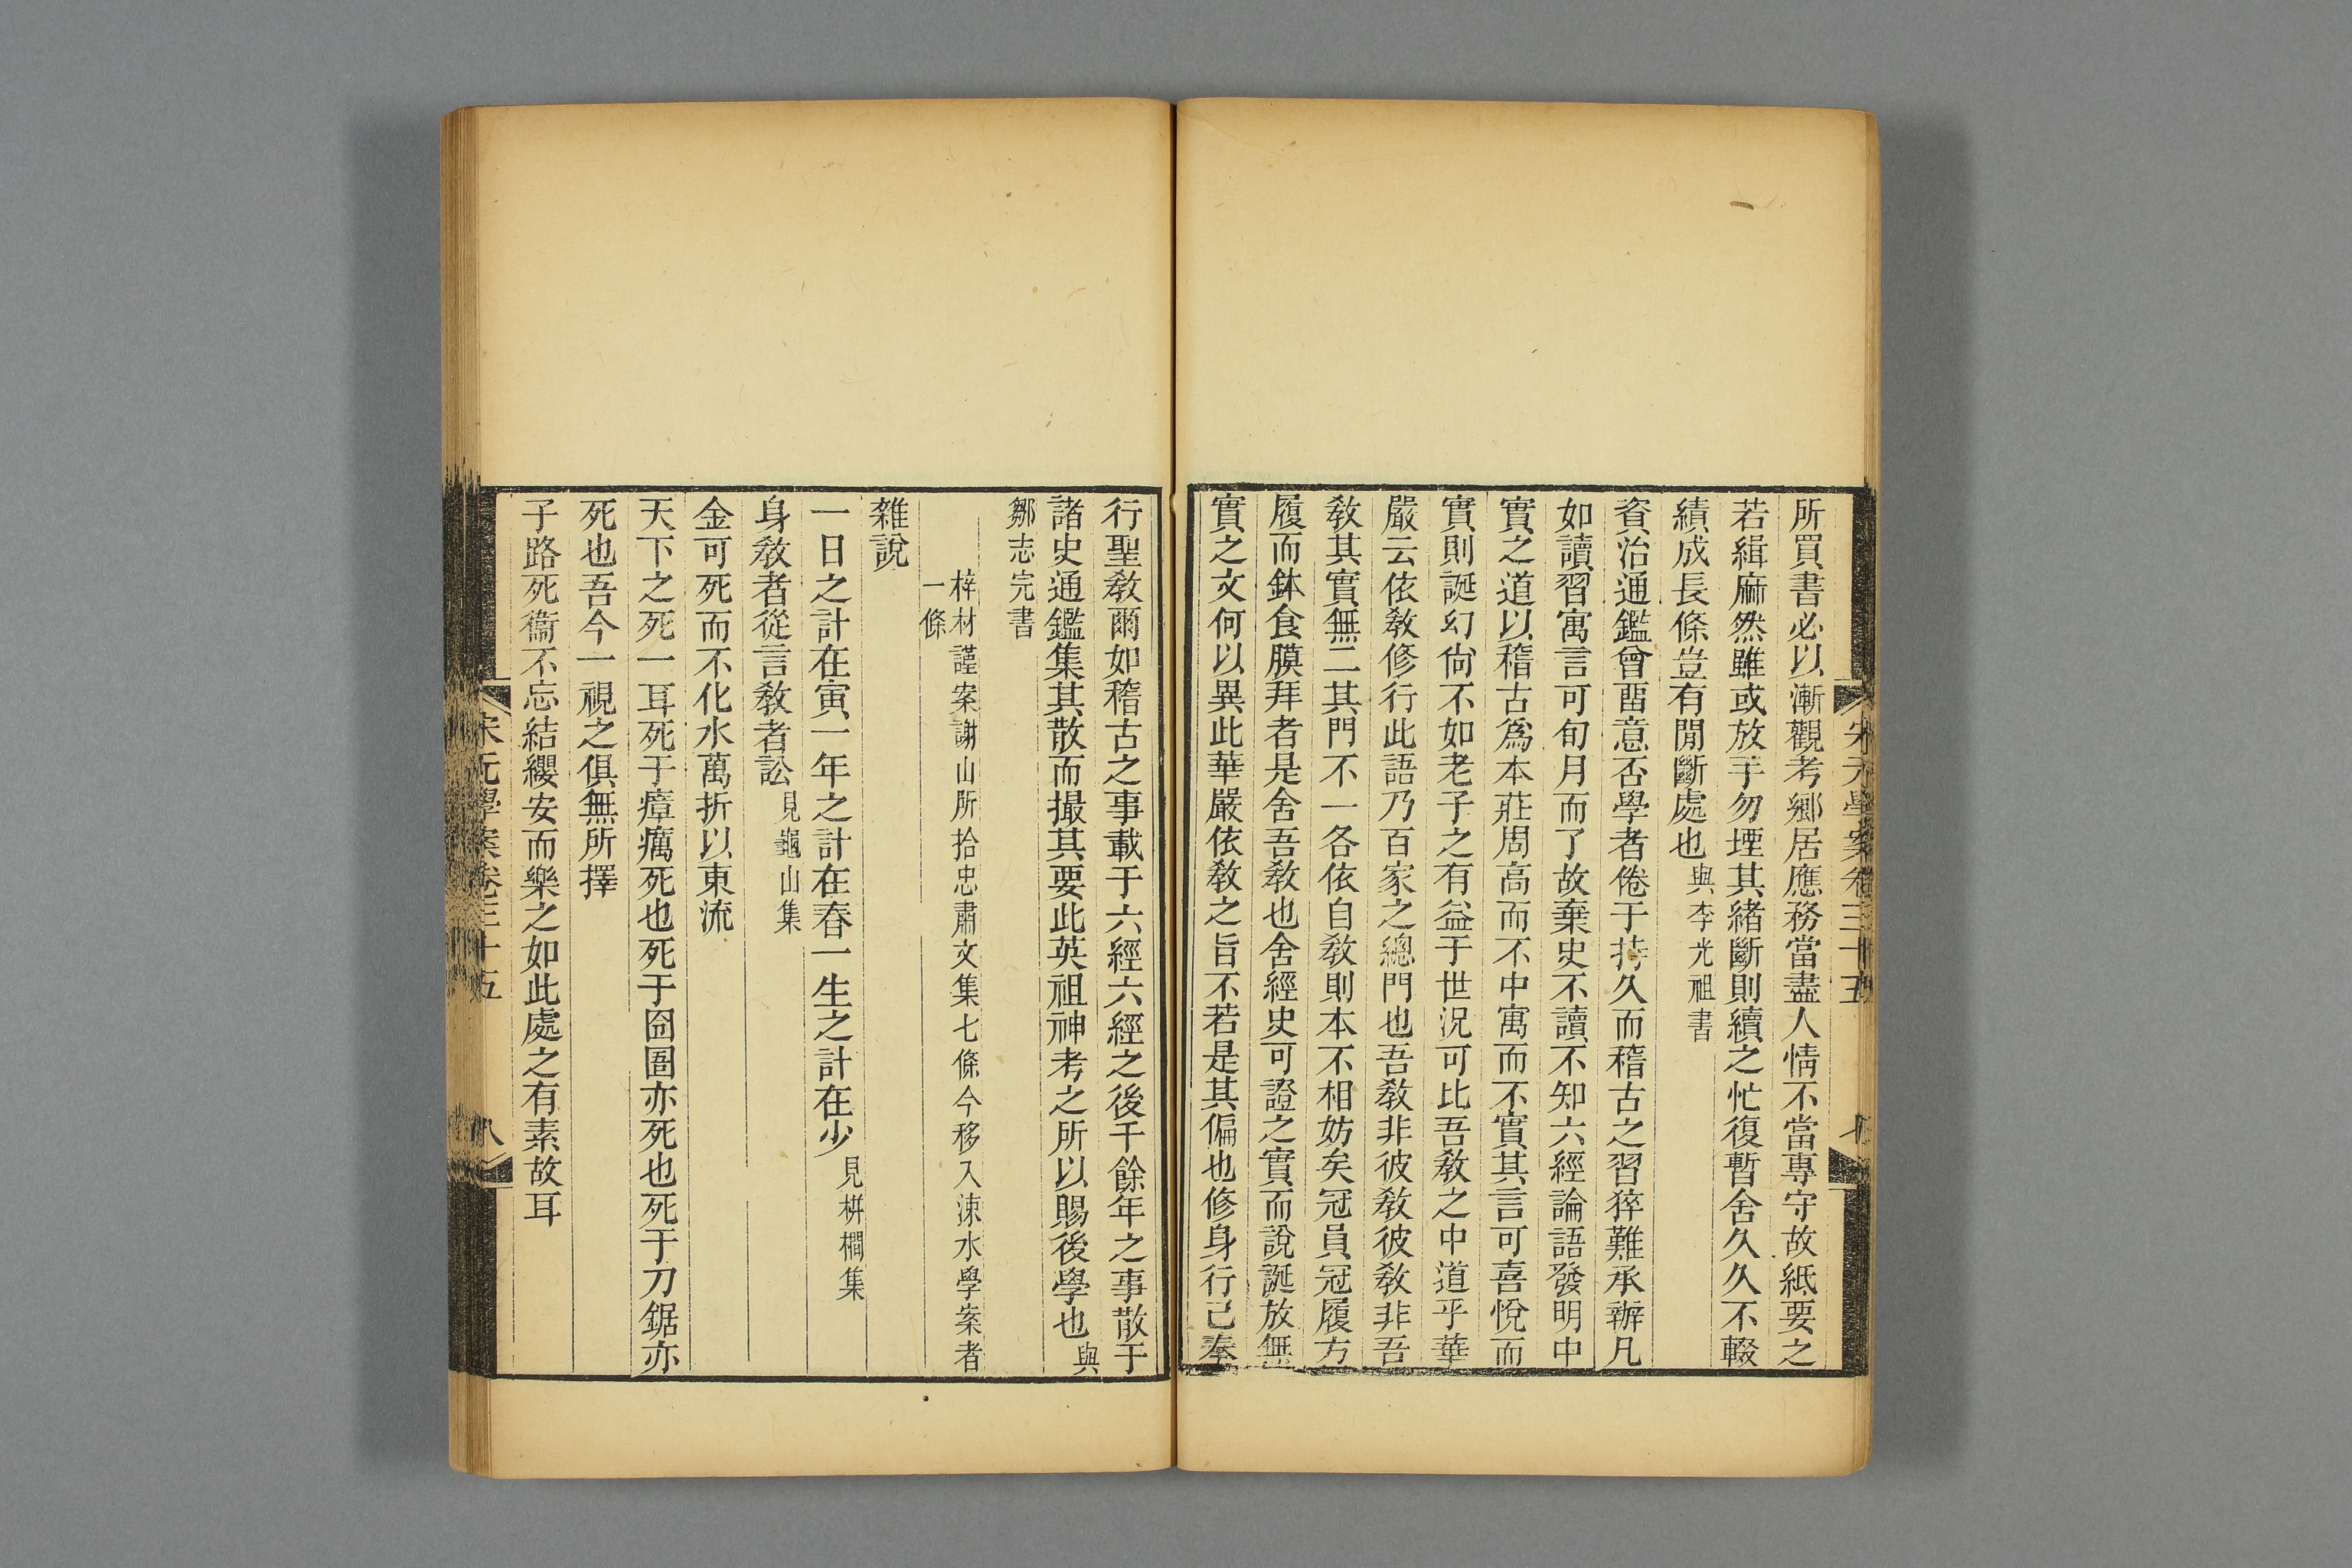 宋元學案卷三十五
七
所買書必以漸觀考鄉居應務當盡人情不當專守故紙要之
若緝麻然雖或放手勿堙其緒斷則續之忙復暫舍久久不輟
績成長條豈有閒斷處也與李光祖書
資治通鑑曾畱意否學者倦于持久而稽古之習猝難承辦凡
如讀習寓言可旬月而了故棄史不讀不知六經論語發明中
實之道以稽古爲本莊周高而不中寓而不實其言可喜悅而
實則誕幻尙不如老子之有益于世況可比吾敎之中道乎華
嚴云依敎修行此語乃百家之總門也吾敎非彼敎彼敎非吾
敎其實無二其門不一各依自敎則本不相妨矣冠員冠履方
履而鉢食膜拜者是舍吾敎也舍經史可證之實而說誕放無
實之文何以異此華嚴依敎之旨不若是其偏也修身行己奉
行聖敎爾如稽古之事載于六經六經之後千餘年之事散于
諸史通鑑集其散而撮其要此英祖神考之所以賜後學也與
鄒志完書
梓材謹案謝山所拾忠肅文集七條今移入涑水學案者
一條
雜說
一日之計在寅一年之計在春一生之計在少見栟櫚集
身敎者從言敎者訟見龜山集
金可死而不化水萬折以東流
天下之死一耳死于瘴癘死也死于囹圄亦死也死于刀鋸亦
死也吾今一視之俱無所擇
子路死衞不忘結纓安而樂之如此處之有素故耳
宋元學案卷三十五
八